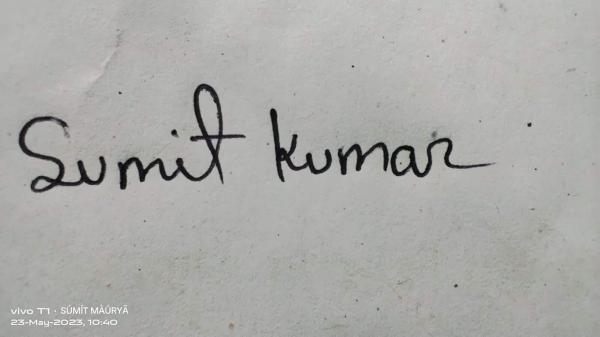 Sumit Kumar
vivo T1 · SÚMÍT MÀÛRYÃ
23-May-2023, 10:40